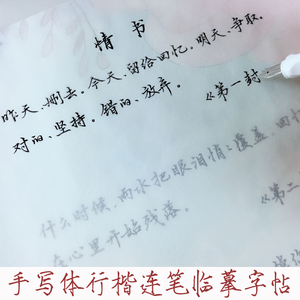 情书
昨天、删去。今天、留给回忆。明天、争取。
对的、坚持。错的、放弃。 《第一封
什么时候，雨水把眼泪悄悄覆盖，回忆
在心里开始残落。 《第二
手写体行楷连笔临摹字帖